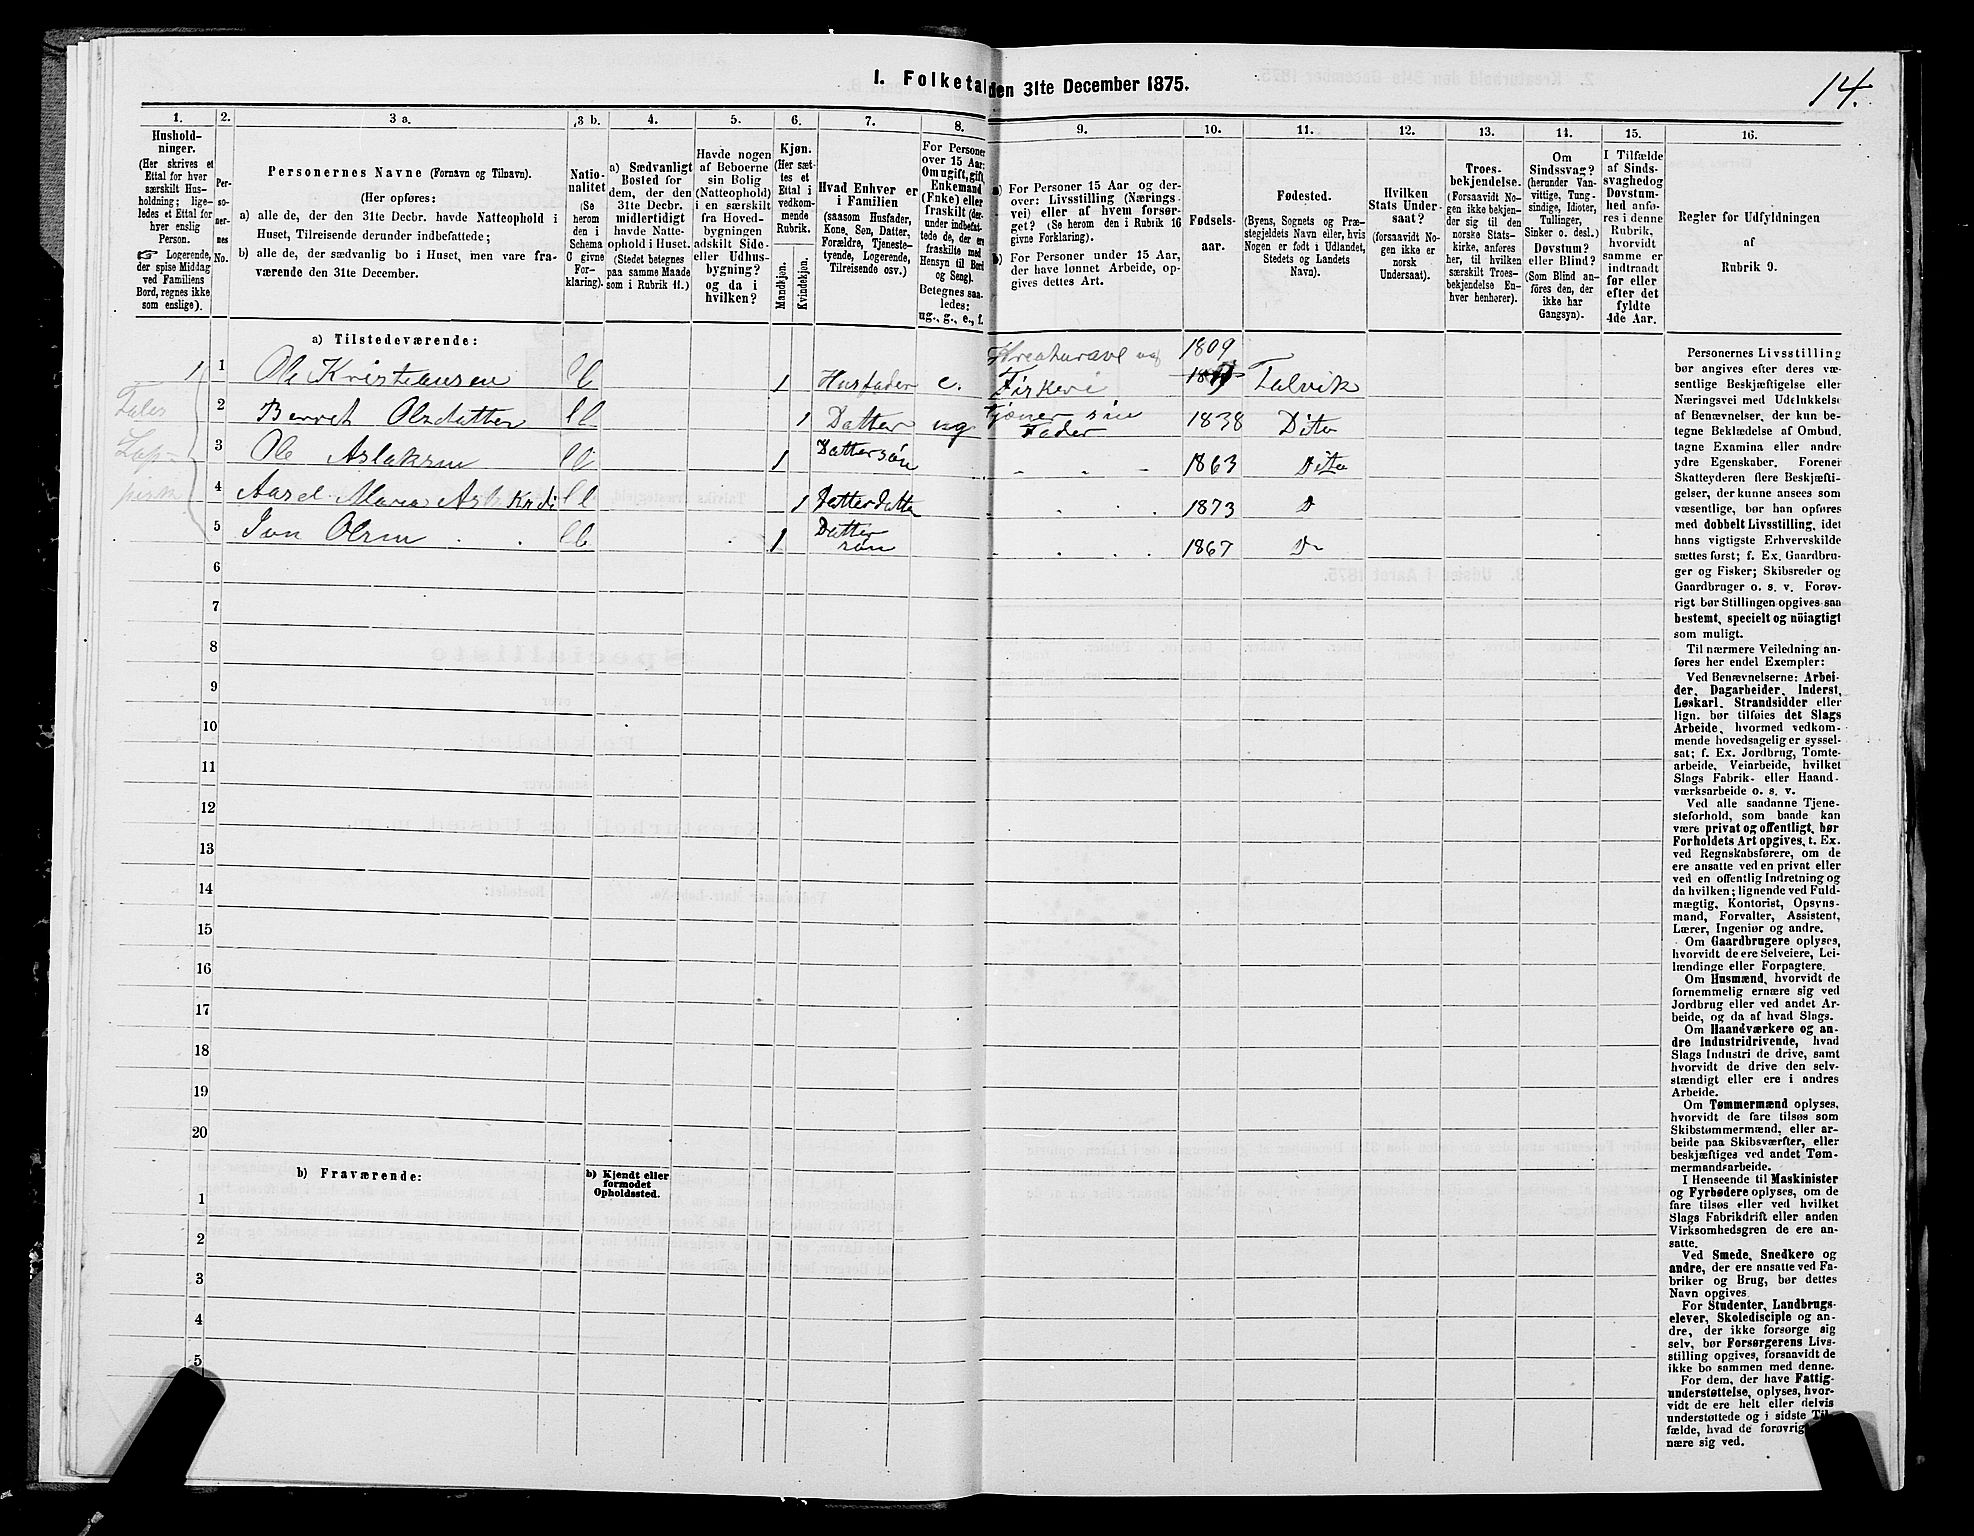 I. Folketal den 31te December 1875.
14.
1.
Hushold-
ninger.
(Her skrives et
Ettal for hver
særskilt Hus-
holdning; lige-
ledes et Ettal for
hver enslig
Person.
☞ Logerende,
der spise Middag
ved Familiens
Bord, regnes ikke
som enslige).
2.
Per-
so-
ner-
nes
No.
3 a.
Personernes Navne (Fornavn og Tilnavn).
(Her opføres:
a) alle de, der den 31te Decbr. havde Natteophold i
Huset, Tilreisende derunder indbefattede;
b) alle de, der sædvanlig bo i Huset, men vare fra-
værende den 31te December.
3 b.
Natio-
nalitet
(Se
herom
den i
Schema
C givne
For-
klaring).
4.
a) Sædvanligt
Bosted for
dem, der den
31te Decbr.
midlertidigt
havde Natte-
ophold i Huset.
(Stedet betegnes
paa samme Maade
som i Rubrik 11.)
5.
Havde nogen
af Beboerne
sin Bolig
(Natteophold)
i en særskilt
fra Hoved-
bygningen
adskilt Side-
eller Udhus-
bygning?
og da i
hvilken?
6.
Kjøn.
(Her sæt-
tes et
Ettal i
vedkom-
mende
Rubrik.
Mandkjøn.
Kvindekjøn.
7.
Hvad Enhver er
i Familien
(saasom Husfader,
Kone, Søn, Datter,
Forældre, Tjeneste-
tyende, Logerende,
Tilreisende osv.)
8.
For Personer
over 15 Aar:
Om ugift, gift,
Enkemand
(Enke) eller
fraskilt (der-
under indbefat-
tede de, der ere
fraskilte med
Hensyn til Bord
og Seng).
Betegnes saa-
ledes:
ug., g., e., f.
9.
a) For Personer 15 Aar og der-
over: Livsstilling (Nærings-
vei) eller af hvem forsør-
get? (Se herom den i Rubrik 16
givne Forklaring).
b) For Personer under 15 Aar,
der have lønnet Arbeide, op-
gives dettes Art.
10.
Fødsels-
aar.
11.
Fødested.
(Byens, Sognets og Præ-
stegjeldets Navn eller, hvis
Nogen er født i Udlandet,
Stedets og Landets
Navn).
12.
Hvilken
Stats Under-
saat?
(forsaavidt No-
gen ikke er
norsk
Undersaat).
13.
Troes-
bekjendelse.
(Forsaavidt No-
gen ikke bekjen-
der sig til den
norske Stats-
kirke, anføres
her, til hvilken
særskilt Troes-
bekjendelse En-
hver henhører).
14.
Om
Sindssvag?
(herunder Van-
vittige, Tung-
sindige, Idioter,
Tullinger,
Sinker o. desl.)
Døvstum?
eller Blind?
(Som Blind an-
føres den, der
ikke har
Gangsyn).
15.
I Tilfælde
af Sinds-
svaghed og
Døvstum-
hed anfø-
res i denne
Rubrik,
hvorvidt
samme er
indtraadt
før eller
efter det
fyldte
4de Aar.
16.
Regler for Udfyldningen
af
Rubrik 9.
a) Tilstedeværende:
1 1 Ole Kristiansen 1 Husfader e. Kreaturavl og Fiskeri 1809 Talvik
2 Berret Olsdatter 1 Datter ug Tjener sin Fader 1838 Dito
3 Ole Aslaksen 1 Dattersøn - - - 1863 Dito
4 Maria 1 Datterdatter 1873 D
5 Olsen 1 Datter søn 1867 Do
Taler
Lap-
pisk
6
7
8
9
10
11
12
13
14
15
16
17
18
19
20
b) Fraværende:
b) Kjendt eller
formodet
Opholdssted.
1
2
3
4
5
Personernes Livsstilling
bør angives efter deres væ-
sentlige Beskjæftigelse eller
Næringsvei med Udelukkelse
af Benævnelser, der kun be-
tegne Beklædelse af Ombud,
tagne Examina eller andre
ydre Egenskaber. Forener
Skatteyderen flere Beskjæfti-
gelser, der kunne ansees som
væsentlige, bør han opføres
med dobbelt Livsstilling, idet
hans vigtigste Erhvervskilde
sættes først; f. Ex. Gaardbru-
ger og Fisker; Skibsreder og
Gaardbruger o. s. v. Forøv-
rigt bør Stillingen opgives saa
bestemt, specielt og nøiagtigt
som muligt.
Til nærmere Veiledning an-
føres her endel Exempler:
Ved Benævnelserne: Arbei-
der, Dagarbeider, Inderst,
Løskarl, Strandsidder eller
lign. bør tilføies det Slags
Arbeide, hvormed vedkom-
mende hovedsagelig er syssel-
sat; f. Ex. Jordbrug, Tomte-
arbeide, Veiarbeide, hvilket
Slags Fabrik- eller Haand-
værksarbeide o. s. v.
Ved alle saadanne Tjene-
steforhold, som baade kan
være privat og offentligt, bør
Forholdets Art opgives, t. Ex.
ved Regnskabsførere, om de
ere ansatte ved en privat eller
ved en offentlig Indretning og
da hvilken; lignende ved Fuld-
mægtig, Kontorist, Opsyns-
mand, Forvalter, Assistent,
Lærer, Ingeniør og andre.
Om Gaardbrugere oplyses,
hvorvidt de ere Selveiere, Lei-
lændinge eller Forpagtere.
Om Husmænd, hvorvidt de
fornemmelig ernære sig ved
Jordbrug eller ved andet Ar-
beide, og da af hvad Slags.
Om Haandværkere og an-
dre Industridrivende, hvad
Slags Industri de drive, samt
hvorvidt de drive den selv-
stændigt eller ere i andres
Arbeide.
Om Tømmermænd oplyses,
hvorvidt de fare tilsøs som
Skibstømmermænd, eller ar-
beide paa Skibsværfter, eller
beskjæftiges ved andet Tøm-
mermandsarbeide.
I Henseende til Maskinister
og Fyrbødere oplyses, om de
fare tilsøs eller ved hvilket
Slags Fabrikdrift eller anden
Virksomhedsgren de ere an-
satte.
Ved Smede, Snedkere og
andre, der ere ansatte ved Fa-
briker og Brug, bør dettes
Navn opgives.
For Studenter, Landbrugs-
elever, Skoledisciple og an-
dre, der ikke forsørge sig
selv, bør Forsørgerens Livs-
stilling opgives, forsaavidt de
ikke bo sammen med denne.
For dem, der have Fattig-
understøttelse, oplyses, hvor-
vidt de ere helt eller delvis
understøttede og i sidste Til-
fælde, hvad de forøvrig
nære sig ved.